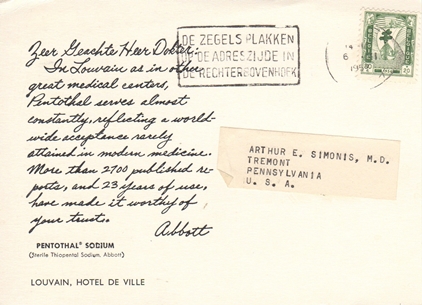 Zeer Geachte Heer Dokter:
In Louvain as in other
great medical centers,
Pentothal serves almost
constantly, reflecting a world-
wide acceptance rarely
attained in modern medicine.
More than 2700 published re-
ports, and 23 years of use,
have made it worthy of
your trust.
Abbott
PENTOTHAL® SODIUM
(Sterile Thiopental Sodium, Abbott)
LOUVAIN, HOTEL DE VILLE
DE ZEGELS PLAKKEN
OP DE ADRESZIJDE IN
DE RECHTERBOVENHOEK
ARTHUR E. SIMONIS, M.D.
TREMONT
PENNSYLVANIA
U. S. A.